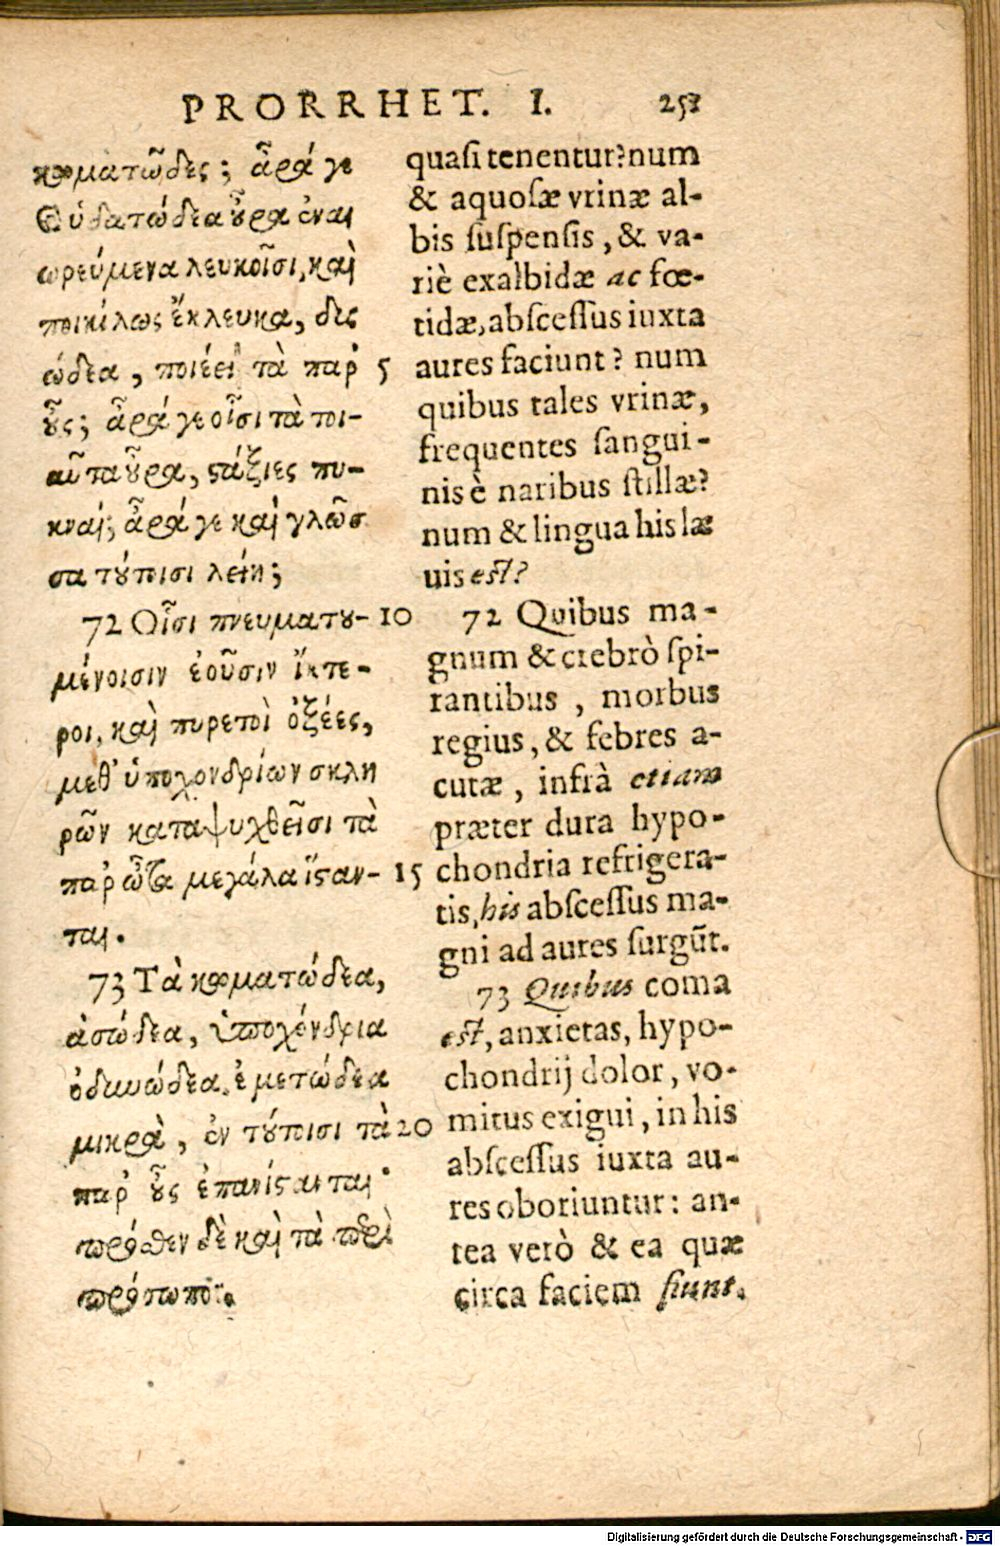 PRORRHET. I. 253
κωματῶδες; ἆρά γε
καὶ ὑδατώδεα οὖρα ἐναι
ωρεύμενα λευκοῖσι, καὶ
ποικίλως ἔκλευκα, δυς
ώδεα, ποιέει τὰ παρ' 5
οὖς; ἆρά γε οἷσι τὰ τοι-
αῦτα οὖρα, στάξιες πυ-
κναί; ἆρά γε καὶ γλῶσ
σα τούτοισι λείη;
72 Οἷσι πνευματου- 10
μένοισιν ἐοῦσιν ἴκτε-
ροι, καὶ πυρετοὶ ὀξέες,
μεθ' ὑποχονδρίων σκλη
ρῶν καταψυχθεῖσι τὰ
παρ' ὦτα μεγάλα ἵσταν- 15
ται.
73 Τὰ κωματώδεα,
ἀσώδεα, ὑποχόνδρια
ὀδυνώδεα, ἐμετώδεα
μικρὰ, ἐν τούτοισι τὰ 20
παρ' οὖς ἐπανίσταται·
πρόσθεν δὲ καὶ τὰ περὶ
πρόσωπον.
quasi tenentur? num
& aquosæ vrinæ al-
bis suspensis, & va-
riè exalbidæ ac fœ-
tidæ, abscessus iuxta
aures faciunt? num
quibus tales vrinæ,
frequentes sangui-
nis è naribus stillæ?
num & lingua his læ
uis est?
72 Quibus ma-
gnum & crebrò spi-
rantibus, morbus
regius, & febres a-
cutæ, infrà etiam
præter dura hypo-
chondria refrigera-
tis, his abscessus ma-
gni ad aures surgūt.
73 Quibus coma
est, anxietas, hypo-
chondrij dolor, vo-
mitus exigui, in his
abscessus iuxta au-
res oboriuntur: an-
tea verò & ea quæ
circa faciem fiunt.
Digitalisierung gefördert durch die Deutsche Forschungsgemeinschaft - DFG